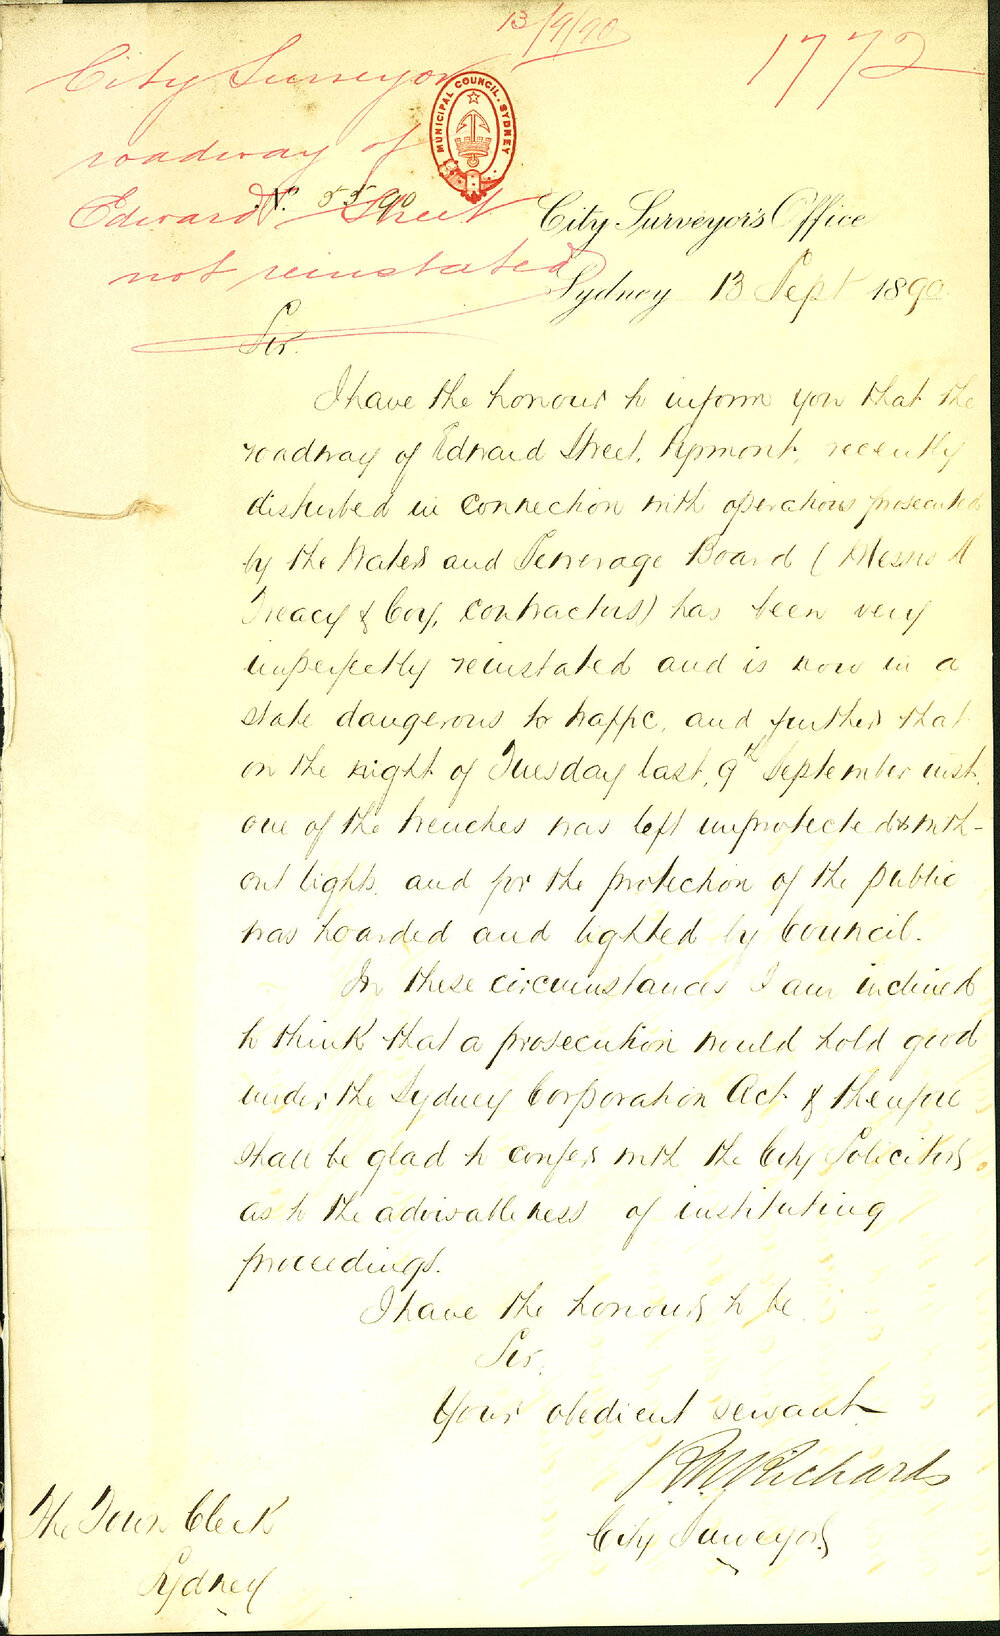 13/9/90
1772
City Surveyor
roadway of
Edward Street
not reinstated
MUNICIPAL COUNCIL. SYDNEY
No. 55 90
City Surveyor's Office
Sydney 13 Sept 1890
Sir.
I have the honour to inform you that the
roadway of Edward Street, Pyrmont, recently
disturbed in connection with operations prosecuted
by the Water and Sewerage Board (Messrs M
Treacy & Coy, contractors) has been very
imperfectly reinstated and is now in a
state dangerous to traffic, and further that
on the night of Tuesday last, 9th September inst.
one of the trenches was left unprotected & with-
out lights, and for the protection of the public
was hoarded and lighted by Council.
In these circumstances I am inclined
to think that a prosecution would hold good
under the Sydney Corporation Act & therefore
shall be glad to confer with the City Solicitor
as to the advisableness of instituting
proceedings.
I have the honour to be
Sir,
Your obedient servant
R.M. Richards
City Surveyor
The Town Clerk
Sydney